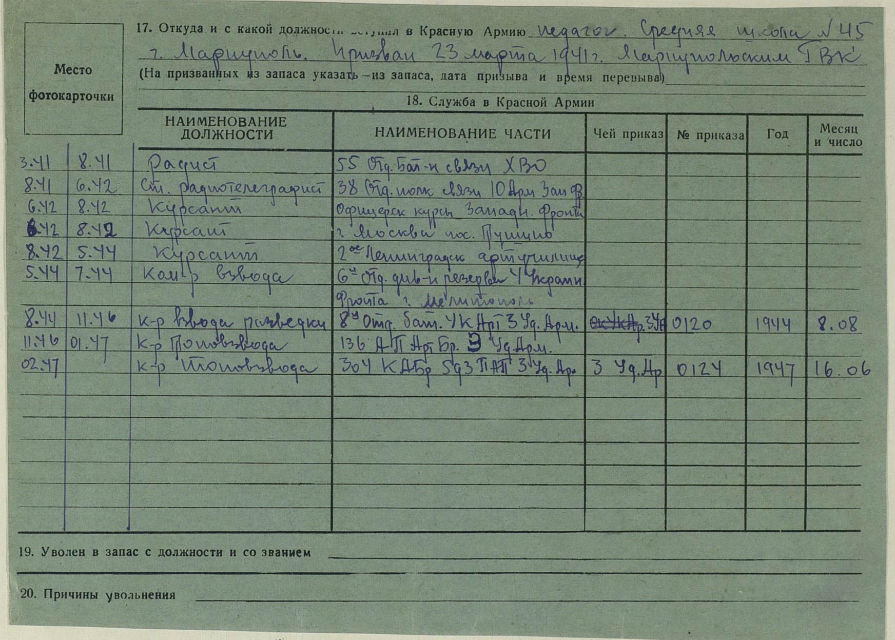 17. Откуда и с какой должност вступил в Красную Армию педагог. Средняя школа N 45
г. Мариуполь. Призван 23 марта 1941 г. Мариупольским ГВК
(На призванных из запаса указать—из запаса, дата призыва и время перерыва)
Место
фотокарточки
18. Служба в Красной Армии
НАИМЕНОВАНИЕ ДОЛЖНОСТИ НАИМЕНОВАНИЕ ЧАСТИ Чей приказ № приказа Год Месяц и число
3.41 8.41 Радист 55 Отд. Бат-н связи ХВО
8.41 6.42 Ст. радиотелеграфист 38 Отд. полк связи 10 Арм. Зап. Ф
6.42 8.42 Курсант Офицерск курсы Западн. Фронта
6.42 8.42 Курсант г. Москва пос. Пущино
8.42 5.44 Курсант 2ое Ленинградск артучилище
5.44 7.44 Ком-р взвода 6й Отд. див-н резерва 4 Украин
Фронта г. Мелитополь
8.44 11.46 к-р взвода разведки 8й Отд. бат. УКАрт 3 Уд. Арм. 3 Уд 0120 1944 8.08
11.46 01.47 к-р Топовзвода 136 АП Арт Бр. 3 Уд Арм.
02.47 к-р Топовзвода 304 КАБр 5 ПАП 3 Уд. Ар. 3 Уд. Ар 0124 1947 16.06
19. Уволен в запас с должности и со званием
20. Причины увольнения